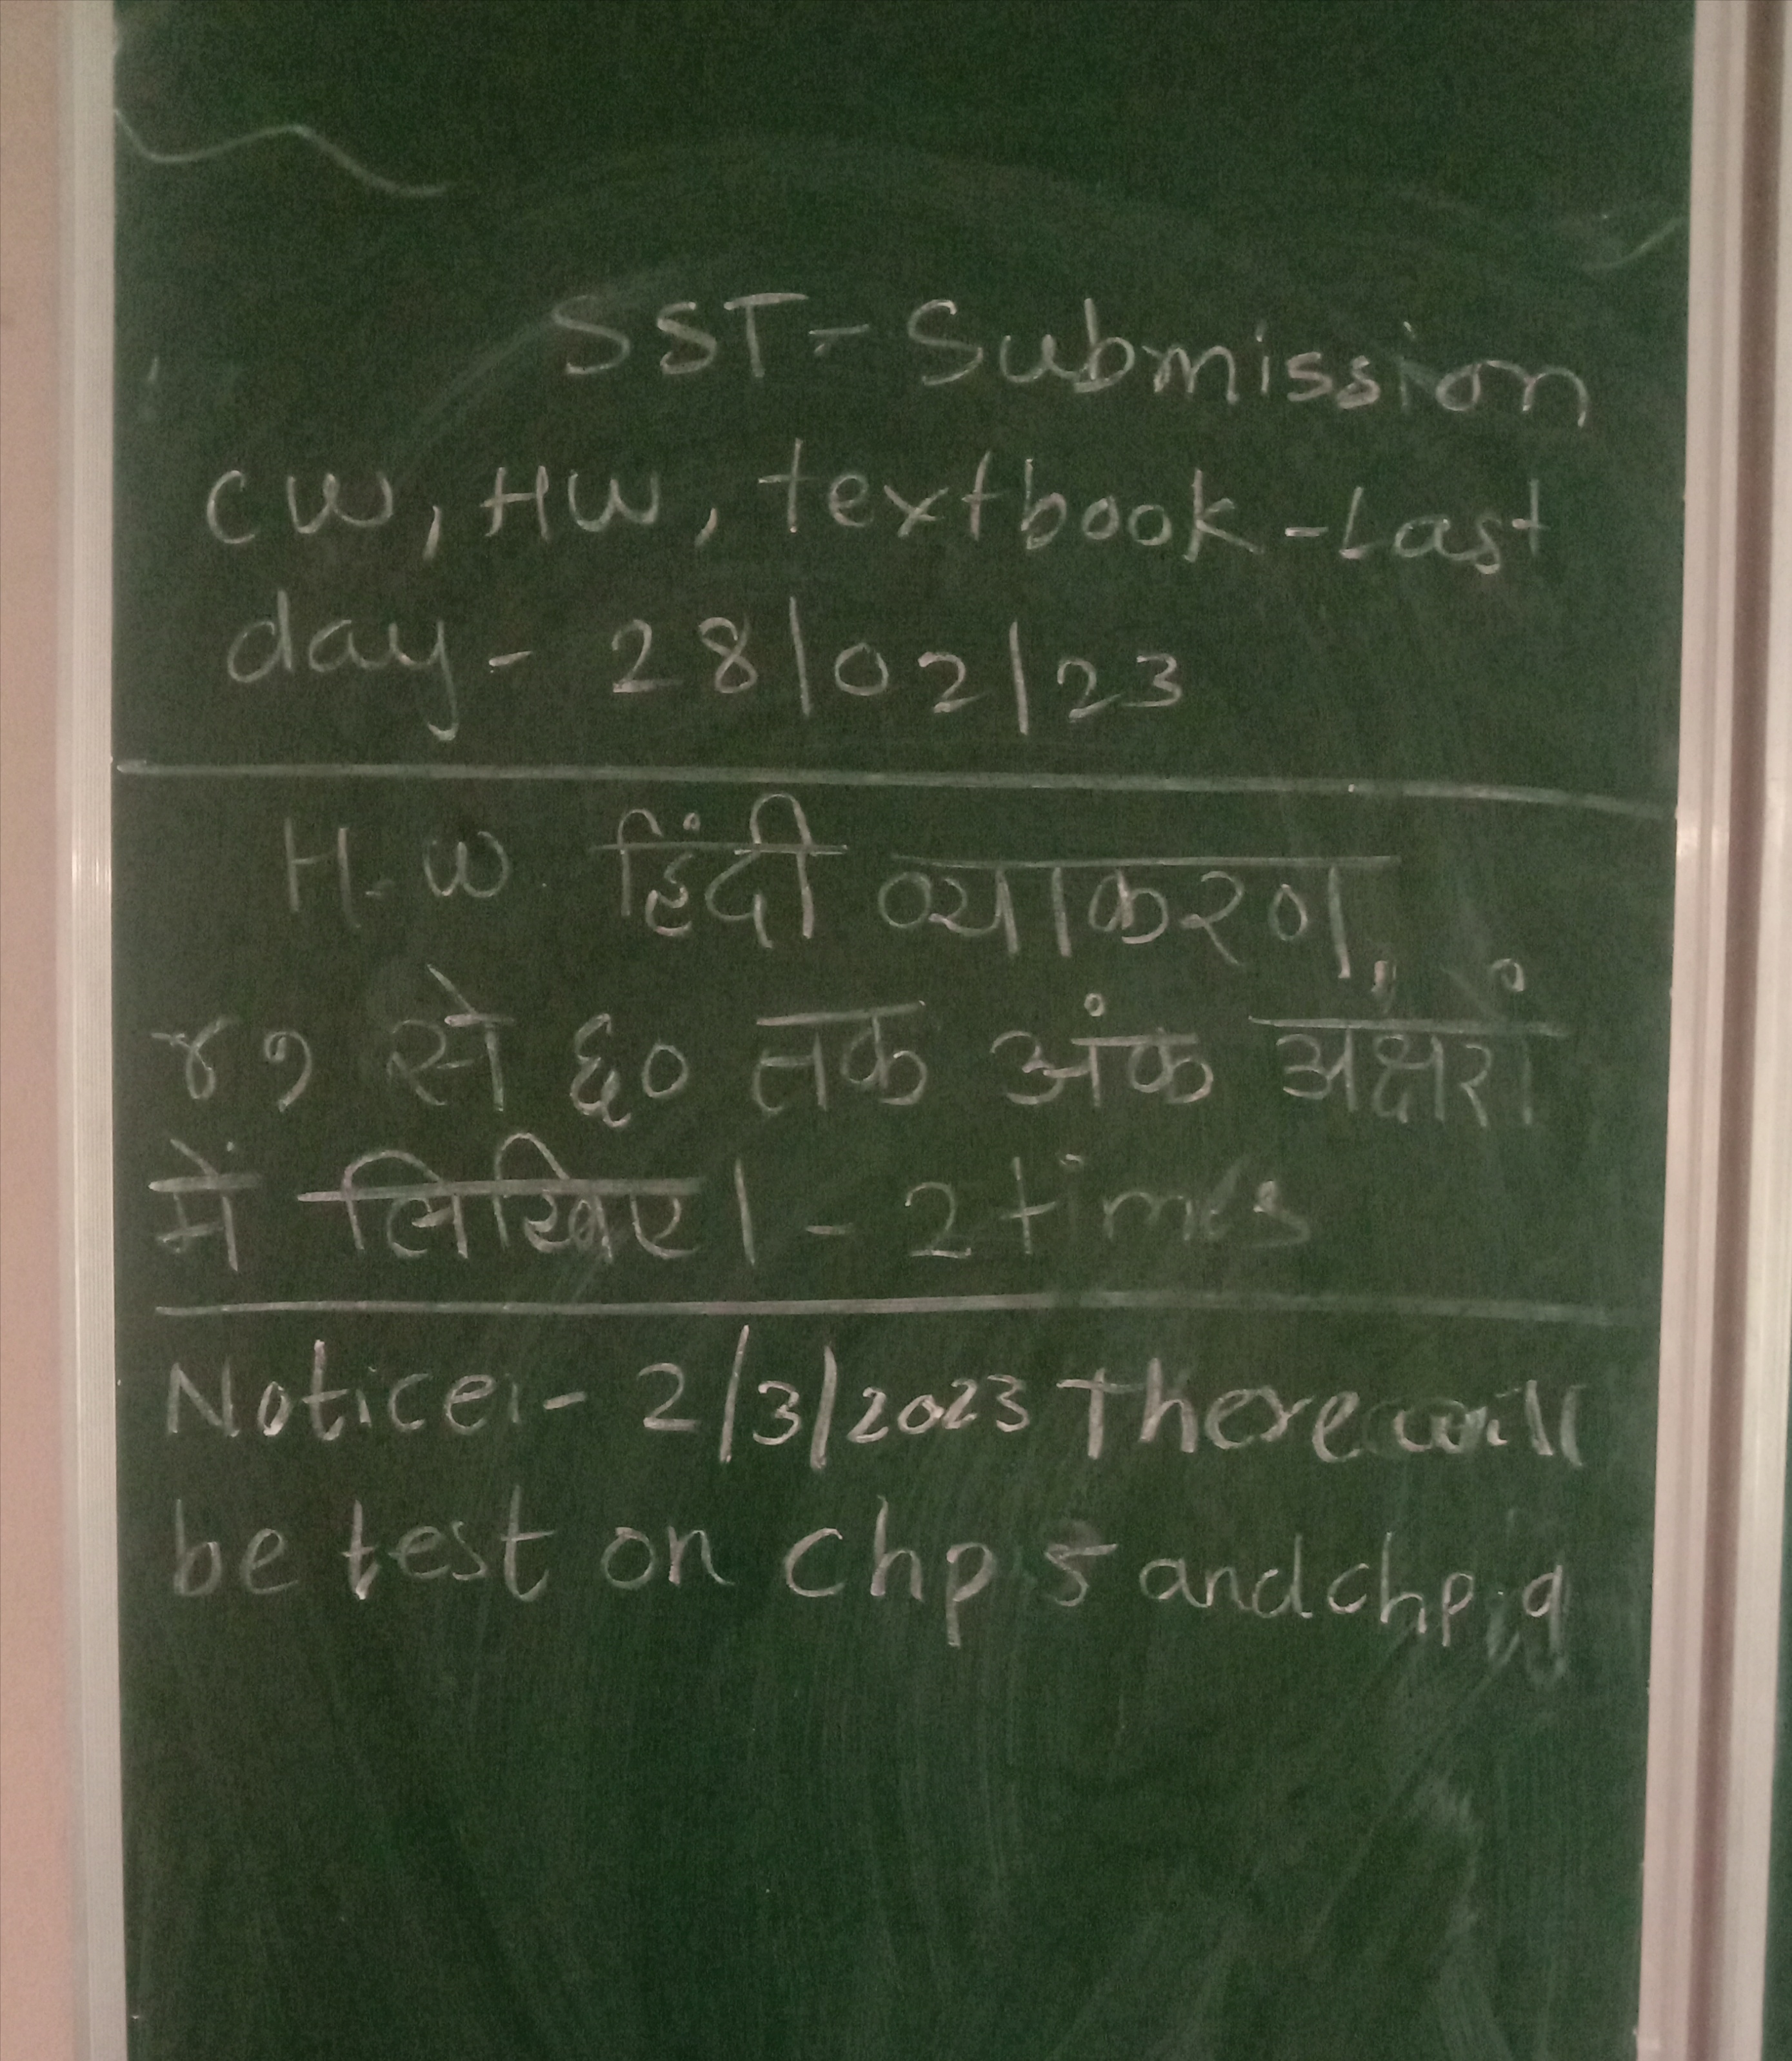 SST - Submission
CW, HW, textbook - Last
day - 28/02/23
H.W. हिंदी व्याकरण
४१ से ६० तक अंक अक्षरों
में लिखिए। - 2 times
Notice:- 2/3/2023 There will
be test on Chp 5 and chp 9